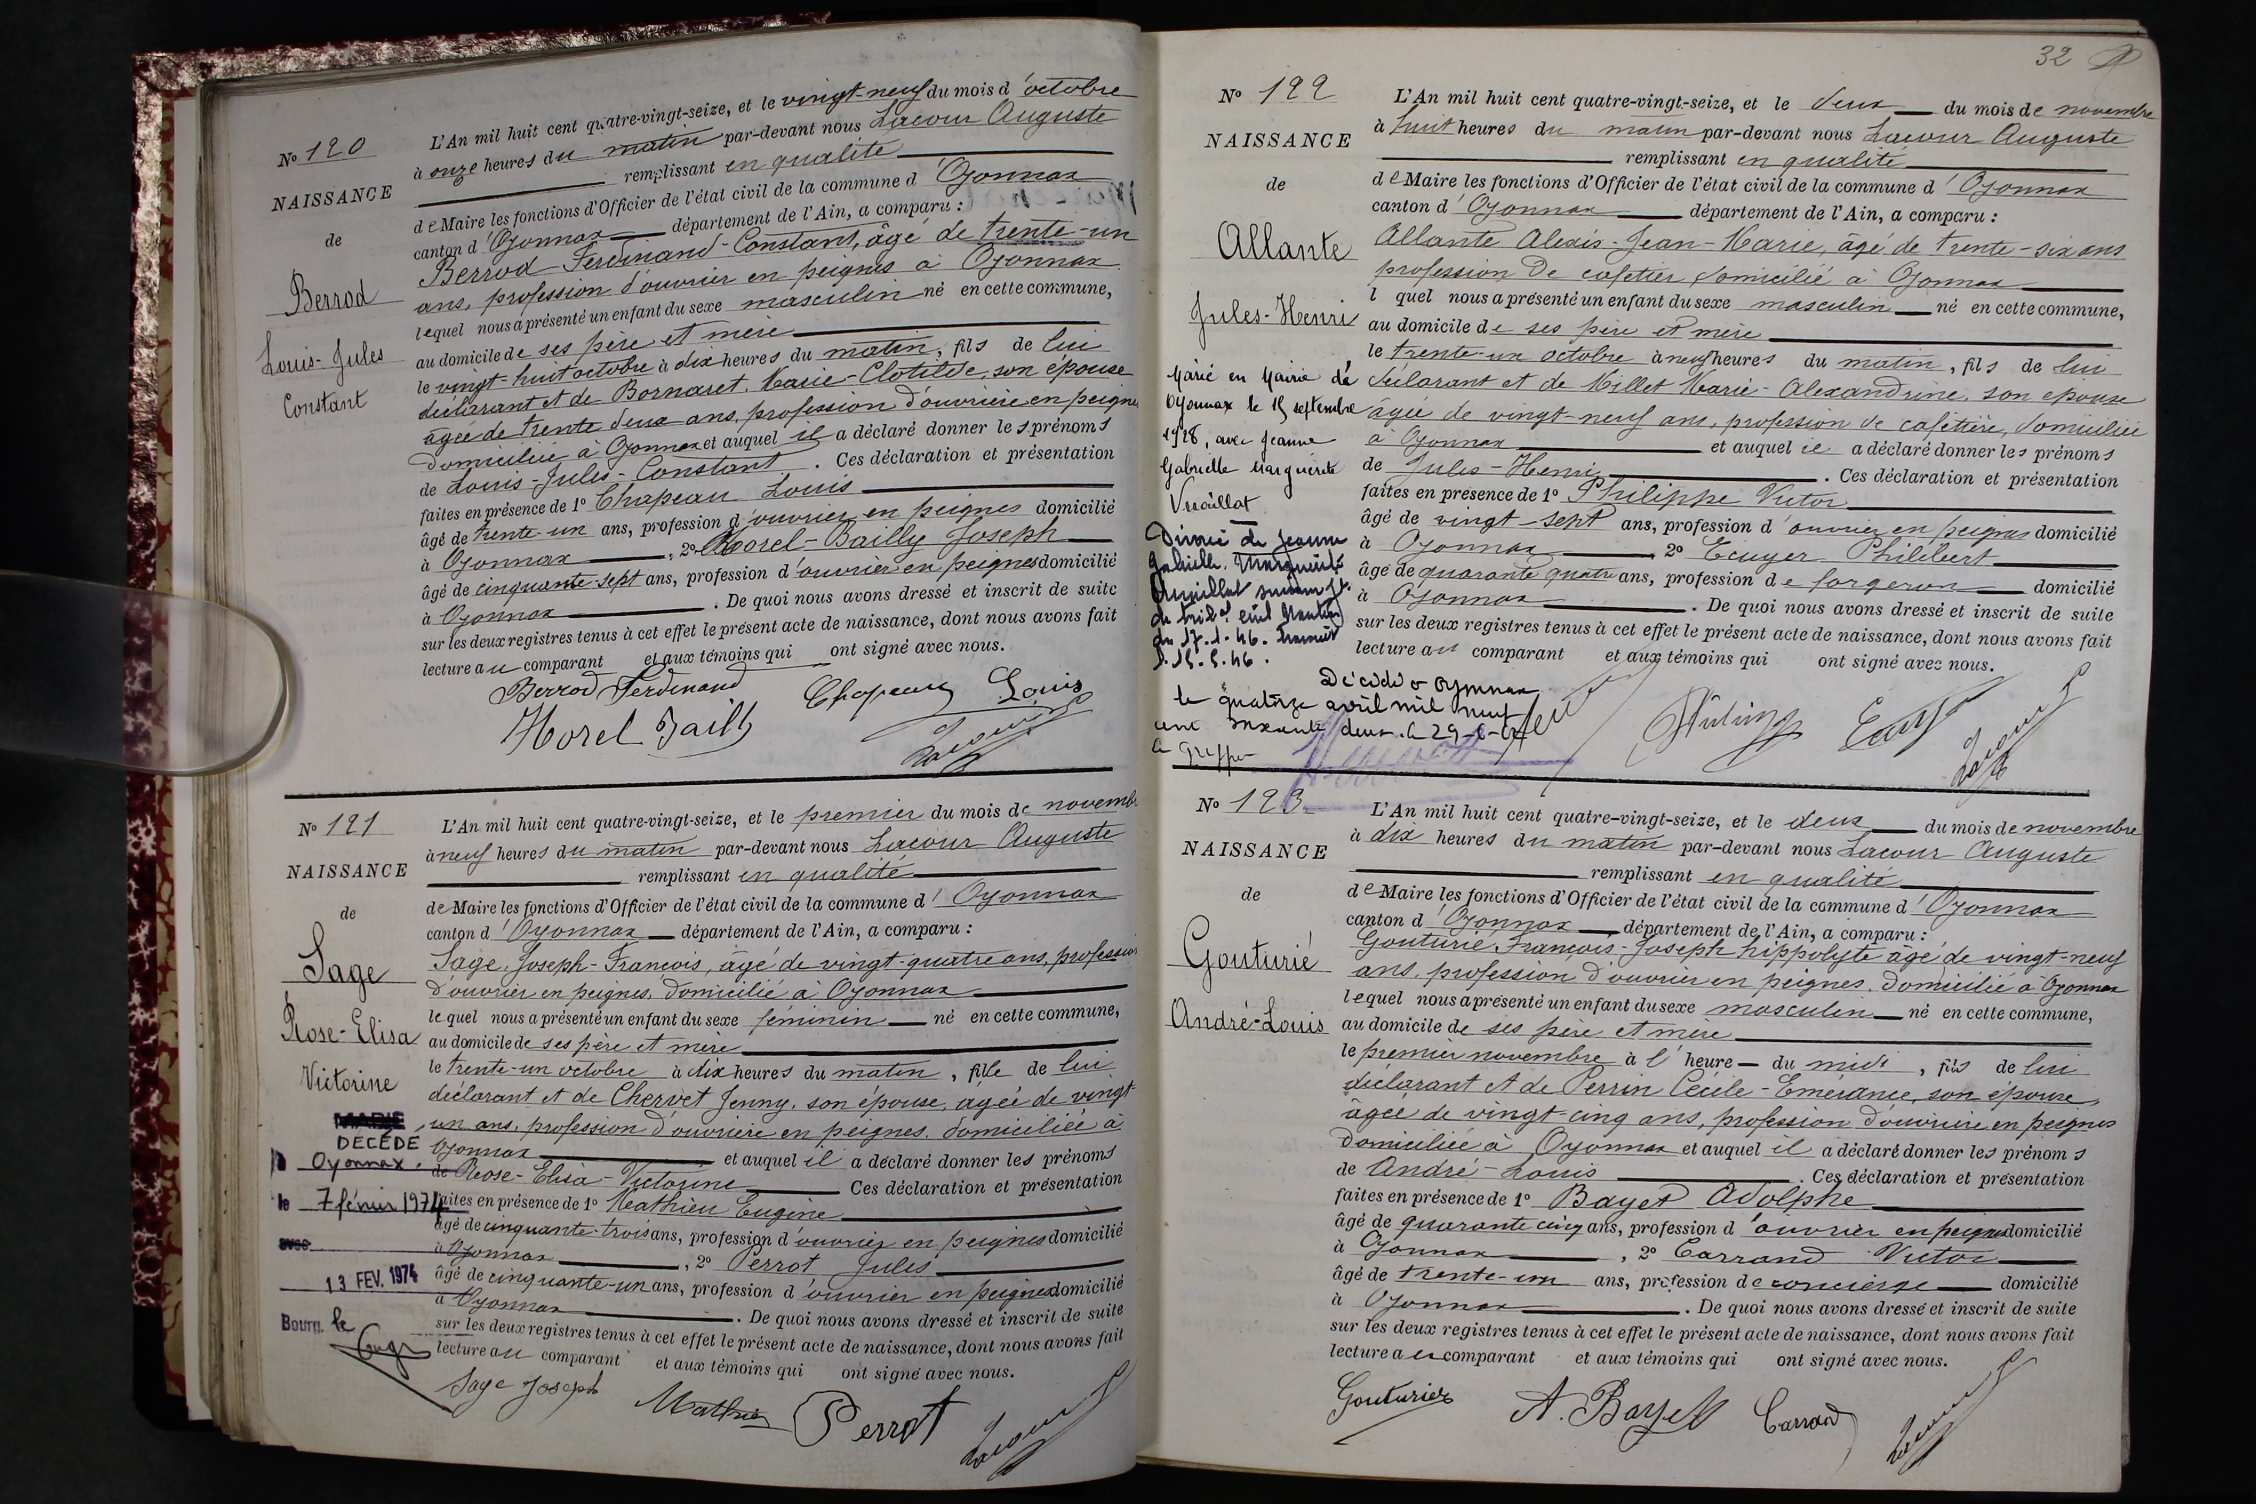 Nº 120
NAISSANCE
de
Berrod
Louis-Jules
Constant
L'An mil huit cent quatre-vingt-seize, et le vingt-neuf du mois d'octobre
à onze heures du matin par-devant nous Lacour Auguste
remplissant en qualité
de Maire les fonctions d'Officier de l'état civil de la commune d'Oyonnax
canton d'Oyonnax département de l'Ain, a comparu :
Berrod Ferdinand-Constant, âgé de trente-un
ans, profession d'ouvrier en peignes à Oyonnax
lequel nous a présenté un enfant du sexe masculin né en cette commune,
au domicile de ses père et mère
le vingt-huit octobre à dix heures du matin, fils de lui
déclarant et de Bornaret, Marie-Clotilde, son épouse
âgée de trente deux ans, profession d'ouvrière en peignes
domiciliée à Oyonnax et auquel il a déclaré donner les prénoms
de Louis-Jules-Constant. Ces déclaration et présentation
faites en présence de 1º Chapeau Louis
âgé de trente-un ans, profession d'ouvrier en peignes domicilié
à Oyonnax, 2º Morel-Bailly Joseph
âgé de cinquante-sept ans, profession d'ouvrier en peignes domicilié
à Oyonnax. De quoi nous avons dressé et inscrit de suite
sur les deux registres tenus à cet effet le présent acte de naissance, dont nous avons fait
lecture au comparant et aux témoins qui ont signé avec nous.
Berrod Ferdinand Chapeau Louis
Morel Bailly Lacour
Nº 121
NAISSANCE
de
Sage
Rose-Elisa
Victorine
MARIÉ
DÉCÉDÉ
à Oyonnax
le 7 février 1974
avec
13 FEV. 1974
Bourg, le
L'An mil huit cent quatre-vingt-seize, et le premier du mois de novembre
à neuf heures du matin par-devant nous Lacour Auguste
remplissant en qualité
de Maire les fonctions d'Officier de l'état civil de la commune d'Oyonnax
canton d'Oyonnax département de l'Ain, a comparu :
Sage, Joseph-François, âgé de vingt-quatre ans, profession
d'ouvrier en peignes, domicilié à Oyonnax
lequel nous a présenté un enfant du sexe féminin né en cette commune,
au domicile de ses père et mère
le trente-un octobre à dix heures du matin, fille de lui
déclarant et de Chervet Jenny, son épouse, agée de vingt-
un ans, profession d'ouvrière en peignes, domiciliée à
Oyonnax et auquel il a déclaré donner les prénoms
de Rose-Elisa-Victorine Ces déclaration et présentation
faites en présence de 1º Mathieu Eugène
âgé de cinquante-trois ans, profession d'ouvrier en peignes domicilié
à Oyonnax, 2º Perrot Jules
âgé de cinquante-un ans, profession d'ouvrier en peignes domicilié
à Oyonnax. De quoi nous avons dressé et inscrit de suite
sur les deux registres tenus à cet effet le présent acte de naissance, dont nous avons fait
lecture au comparant et aux témoins qui ont signé avec nous.
Sage Joseph Mathieu Perrot Lacour
32
Nº 122
NAISSANCE
de
Allante
Jules-Henri
Marié en Mairie de
Oyonnax le 15 septembre
1928, avec Jeanne
Gabrielle Marguerite
Vuaillat
Divorcé de Jeanne
Gabrielle Marguerite
du 17.1.46.
Décédé à Oyonnax
le quatorze avril mil neuf
cent soixante deux. le 29-6-62
Le Greffier
L'An mil huit cent quatre-vingt-seize, et le deux du mois de novembre
à huit heures du matin par-devant nous Lacour Auguste
remplissant en qualité
de Maire les fonctions d'Officier de l'état civil de la commune d'Oyonnax
canton d'Oyonnax département de l'Ain, a comparu :
Allante Alexis-Jean-Marie, âgé de trente-six ans
profession de cafetier, domicilié à Oyonnax
l quel nous a présenté un enfant du sexe masculin né en cette commune,
au domicile de ses père et mère
le trente-un octobre à neuf heures du matin, fils de lui
déclarant et de Millet Marie-Alexandrine, son épouse
âgée de vingt-neuf ans, profession de cafetière, domiciliée
à Oyonnax et auquel il a déclaré donner les prénoms
de Jules-Henri. Ces déclaration et présentation
faites en présence de 1º Philippe Victor
âgé de vingt-sept ans, profession d'ouvrier en peignes domicilié
à Oyonnax 2º Ecuyer Philibert
âgé de quarante quatre ans, profession de forgeron domicilié
à Oyonnax. De quoi nous avons dressé et inscrit de suite
sur les deux registres tenus à cet effet le présent acte de naissance, dont nous avons fait
lecture au comparant et aux témoins qui ont signé avec nous.
Lacour
Nº 123
NAISSANCE
de
Gouturié
André-Louis
L'An mil huit cent quatre-vingt-seize, et le deux du mois de novembre
à dix heures du matin par-devant nous Lacour Auguste
remplissant en qualité
de Maire les fonctions d'Officier de l'état civil de la commune d'Oyonnax
canton d'Oyonnax département de l'Ain, a comparu :
Gouturié, François-Joseph hippolyte âgé de vingt-neuf
ans, profession d'ouvrier en peignes, domicilié à Oyonnax
lequel nous a présenté un enfant du sexe masculin né en cette commune,
au domicile de ses père et mère
le premier novembre à l'heure du midi, fils de lui
déclarant et de Perrin Cécile-Emérance, son épouse,
âgée de vingt-cinq ans, profession d'ouvrière en peignes
domiciliée à Oyonnax et auquel il a déclaré donner les prénoms
de André-Louis. Ces déclaration et présentation
faites en présence de 1º Bayet Adolphe
âgé de quarante cinq ans, profession d'ouvrier en peignes domicilié
à Oyonnax, 2º Carrand Victor
âgé de trente-un ans, profession de concierge domicilié
à Oyonnax. De quoi nous avons dressé et inscrit de suite
sur les deux registres tenus à cet effet le présent acte de naissance, dont nous avons fait
lecture au comparant et aux témoins qui ont signé avec nous.
Gouturier A. Bayet Carrand Lacour